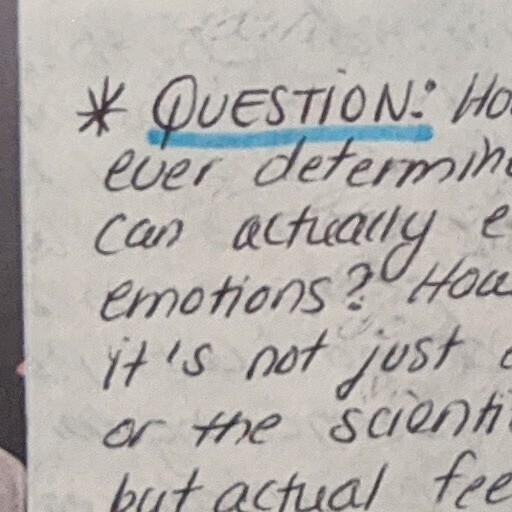 * QUESTION: Ho
ever determin
can actually e
emotions? How
it's not just
or the scienti
but actual fee